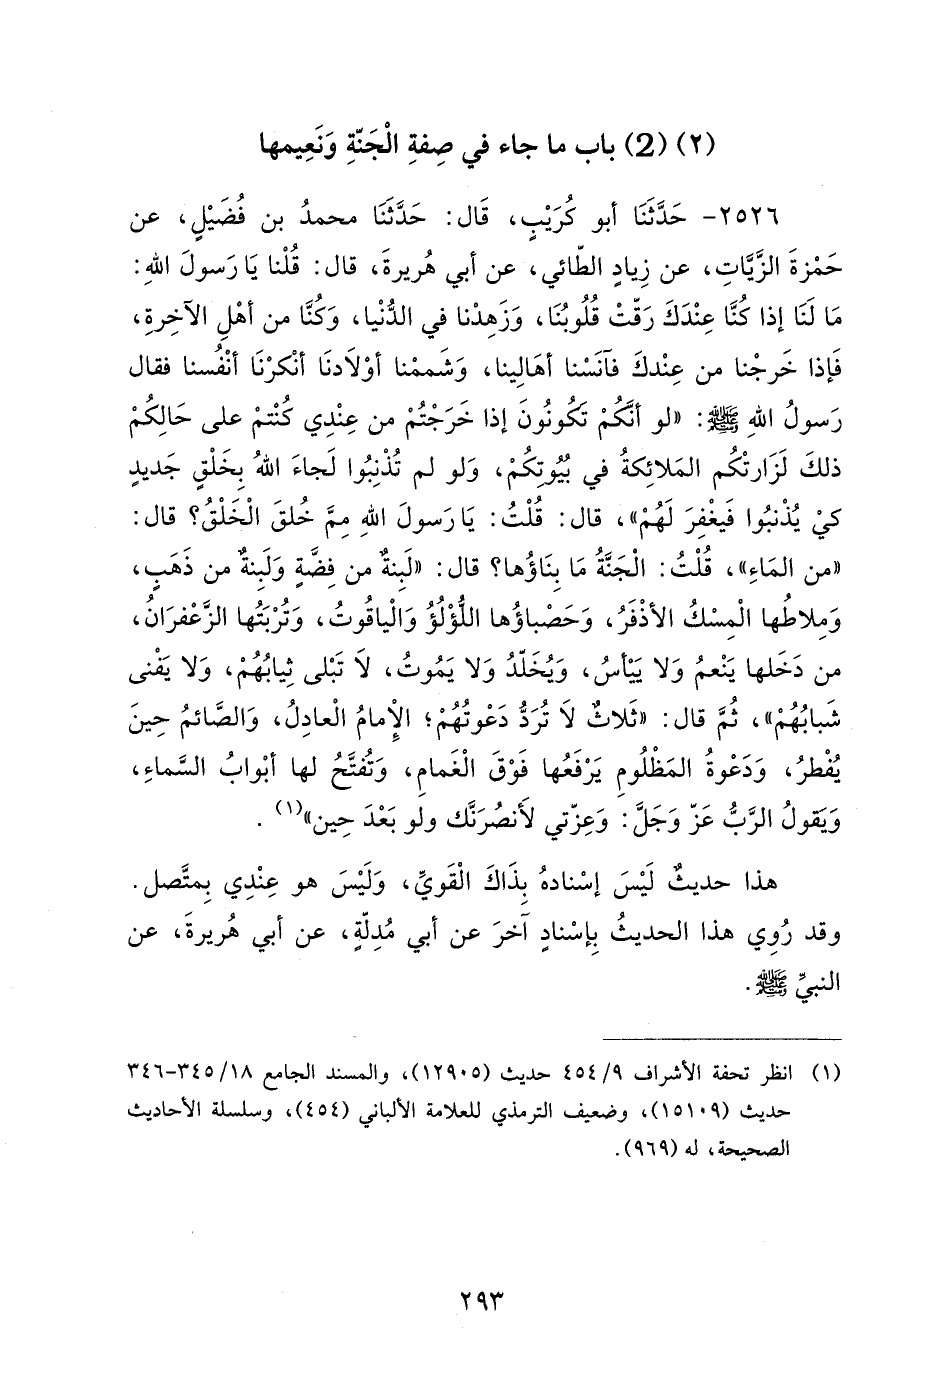 (٢) (2) باب ما جاء في صِفةِ الْجَنَّةِ وَنَعِيمها
٢٥٢٦- حَدَّثَنَا أبو كُرَيْبٍ، قَال: حَدَّثَنَا محمدُ بن فُضَيْلٍ، عن
حَمْزةَ الزَّيَّاتِ، عن زِيادٍ الطَّائي، عن أبي هُريرةَ، قال: قُلْنا يَا رَسولَ اللهِ:
مَا لَنَا إذا كُنَّا عِنْدَكَ رَقّتْ قُلُوبُنَا، وَزَهِدْنا في الدُّنْيا، وَكُنَّا من أهْلِ الآخِرةِ،
فَإذا خَرجْنا من عِنْدكَ فآنَسْنا أهَالِينا، وَشَممْنا أوْلَادنَا أنْكرْنَا أنْفُسنا فقال
رَسولُ اللهِ ﷺ: «لو أنَّكُمْ تَكُونُونَ إذا خَرَجْتُمْ من عِنْدِي كُنْتمْ على حَالِكُمْ
ذلكَ لَزَارتْكُم المَلائكةُ في بُيُوتِكُمْ، وَلو لم تُذْنِبُوا لَجاءَ اللهُ بِخَلْقٍ جَديدٍ
كيْ يُذْنبُوا فَيغْفِرَ لَهُمْ»، قال: قُلْتُ: يَا رَسولَ اللهِ مِمَّ خُلقَ الْخَلْقُ؟ قال:
«من المَاءِ»، قُلْتُ: الْجَنَّةُ مَا بِنَاؤُها؟ قال: «لَبِنةٌ من فِضَّةٍ وَلَبِنةٌ من ذَهَبٍ،
وَمِلاطُها الْمِسْكُ الأذْفَرُ، وَحَصْباؤُها اللُّؤْلُؤُ وَالْياقُوتُ، وَتُرْبَتُها الزَّعْفرَانُ،
من دَخَلها يَنْعمُ وَلا يَيْأسُ، وَيُخَلَّدُ وَلا يَمُوتُ، لَا تَبْلى ثِيابُهُمْ، وَلا يَفْنى
شَبابُهُمْ»، ثُمَّ قال: «ثَلاثٌ لَا تُرَدُّ دَعْوتُهُمْ؛ الإِمامُ الْعادِلُ، وَالصَّائمُ حِينَ
يُفْطرُ، وَدَعْوةُ المَظْلُومِ يَرْفَعُها فَوْقَ الْغَمامِ، وَتُفتَّحُ لها أبْوابُ السَّماءِ،
وَيَقولُ الرَّبُّ عَزّ وَجَلَّ: وَعِزّتي لَأنصُرَنَّك ولو بَعْدَ حِين»(١) .
هذا حديثٌ لَيْسَ إسْنادهُ بِذَاكَ الْقَويِّ، وَلَيْسَ هو عِنْدِي بِمتَّصل.
وقد رُوِي هذا الحديثُ بِإسْنادٍ آخرَ عن أبي مُدِلّةٍ، عن أبي هُريرةَ، عن
النبيِّ ﷺ.
(١) انظر تحفة الأشراف ٤٥٤/٩ حديث (١٢٩٠٥)، والمسند الجامع ٣٤٥/١٨-٣٤٦
حديث (١٥١٠٩)، وضعيف الترمذي للعلامة الألباني (٤٥٤)، وسلسلة الأحاديث
الصحيحة، له (٩٦٩).
٢٩٣